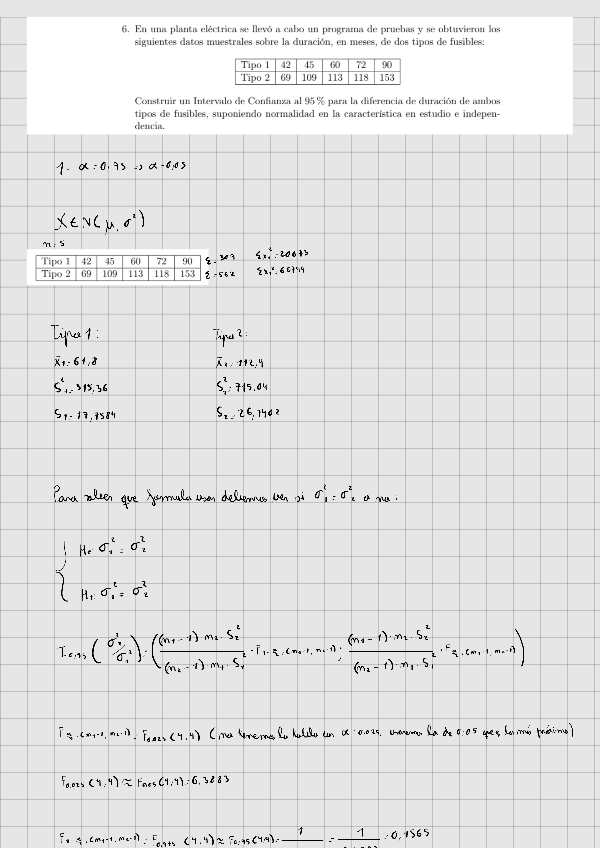 6. En una planta eléctrica se llevó a cabo un programa de pruebas y se obtuvieron los
siguientes datos muestrales sobre la duración, en meses, de dos tipos de fusibles:
Tipo 1 42 45 60 72 90
Tipo 2 69 109 113 118 153
Construir un Intervalo de Confianza al 95 % para la diferencia de duración de ambos
tipos de fusibles, suponiendo normalidad en la característica en estudio e indepen-
dencia.
1. α = 0,95 => α = 0,05
X ∈ N(μ, σ²)
n = 5
Tipo 1 42 45 60 72 90 Σ = 309 Σx₁² = 20673
Tipo 2 69 109 113 118 153 Σ = 562 Σx₂² = 66744
Tipo 1: Tipo 2:
x̄₁ = 61,8 x̄₂ = 112,4
S₁² = 315,36 S₂² = 715,04
S₁ = 17,7584 S₂ = 26,7402
Para saber que formula usar debemos ver si σ₁² = σ₂² o no:
H₀: σ₁² = σ₂²
H₁: σ₁² = σ₂²
I₀,₉₅ (σ₂²/σ₁²) = ( (n₁-1)·n₂·S₂² / (n₂-1)·n₁·S₁² · F₁₋α/₂,(n₁-1, n₂-1) ; (n₁-1)·n₂·S₂² / (n₂-1)·n₁·S₁² · Fα/₂,(n₁-1, n₂-1) )
Fα/₂,(n₁-1, n₂-1) = F₀,₀₂₅ (4,4) (no tenemos la tabla con α = 0.025, usaremos la de 0.05 que es la más próxima)
F₀,₀₂₅ (4,4) ≈ F₀,₀₅ (4,4) = 6,3883
F₁₋α/₂,(n₁-1, n₂-1) = F₀,₉₇₅ (4,4) ≈ F₀,₉₅ (4,4) = 1 = 1 = 0,1565